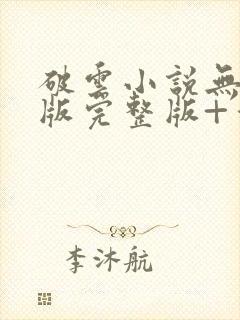 破雲小説無
版完整版+
李沐航